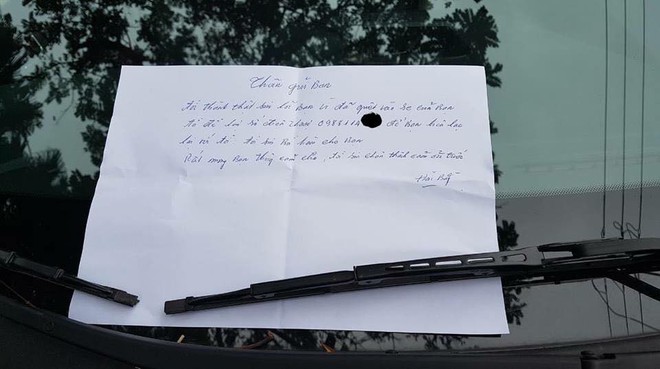 Thân gửi Bạn
Tôi thành thật xin lỗi Bạn vì đã quệt vào xe của Bạn
tớ để lại số điện thoại 0988114 để Bạn liên lạc
lại với tớ tớ
Rất mong Bạn thông cảm cho, tớ xin chân thành cảm ơn